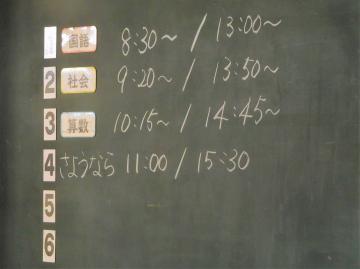 国語 8:30～ / 13:00～
2 社会 9:20～ / 13:50～
3 算数 10:15～ / 14:45～
4 さようなら 11:00 / 15:30
5
6